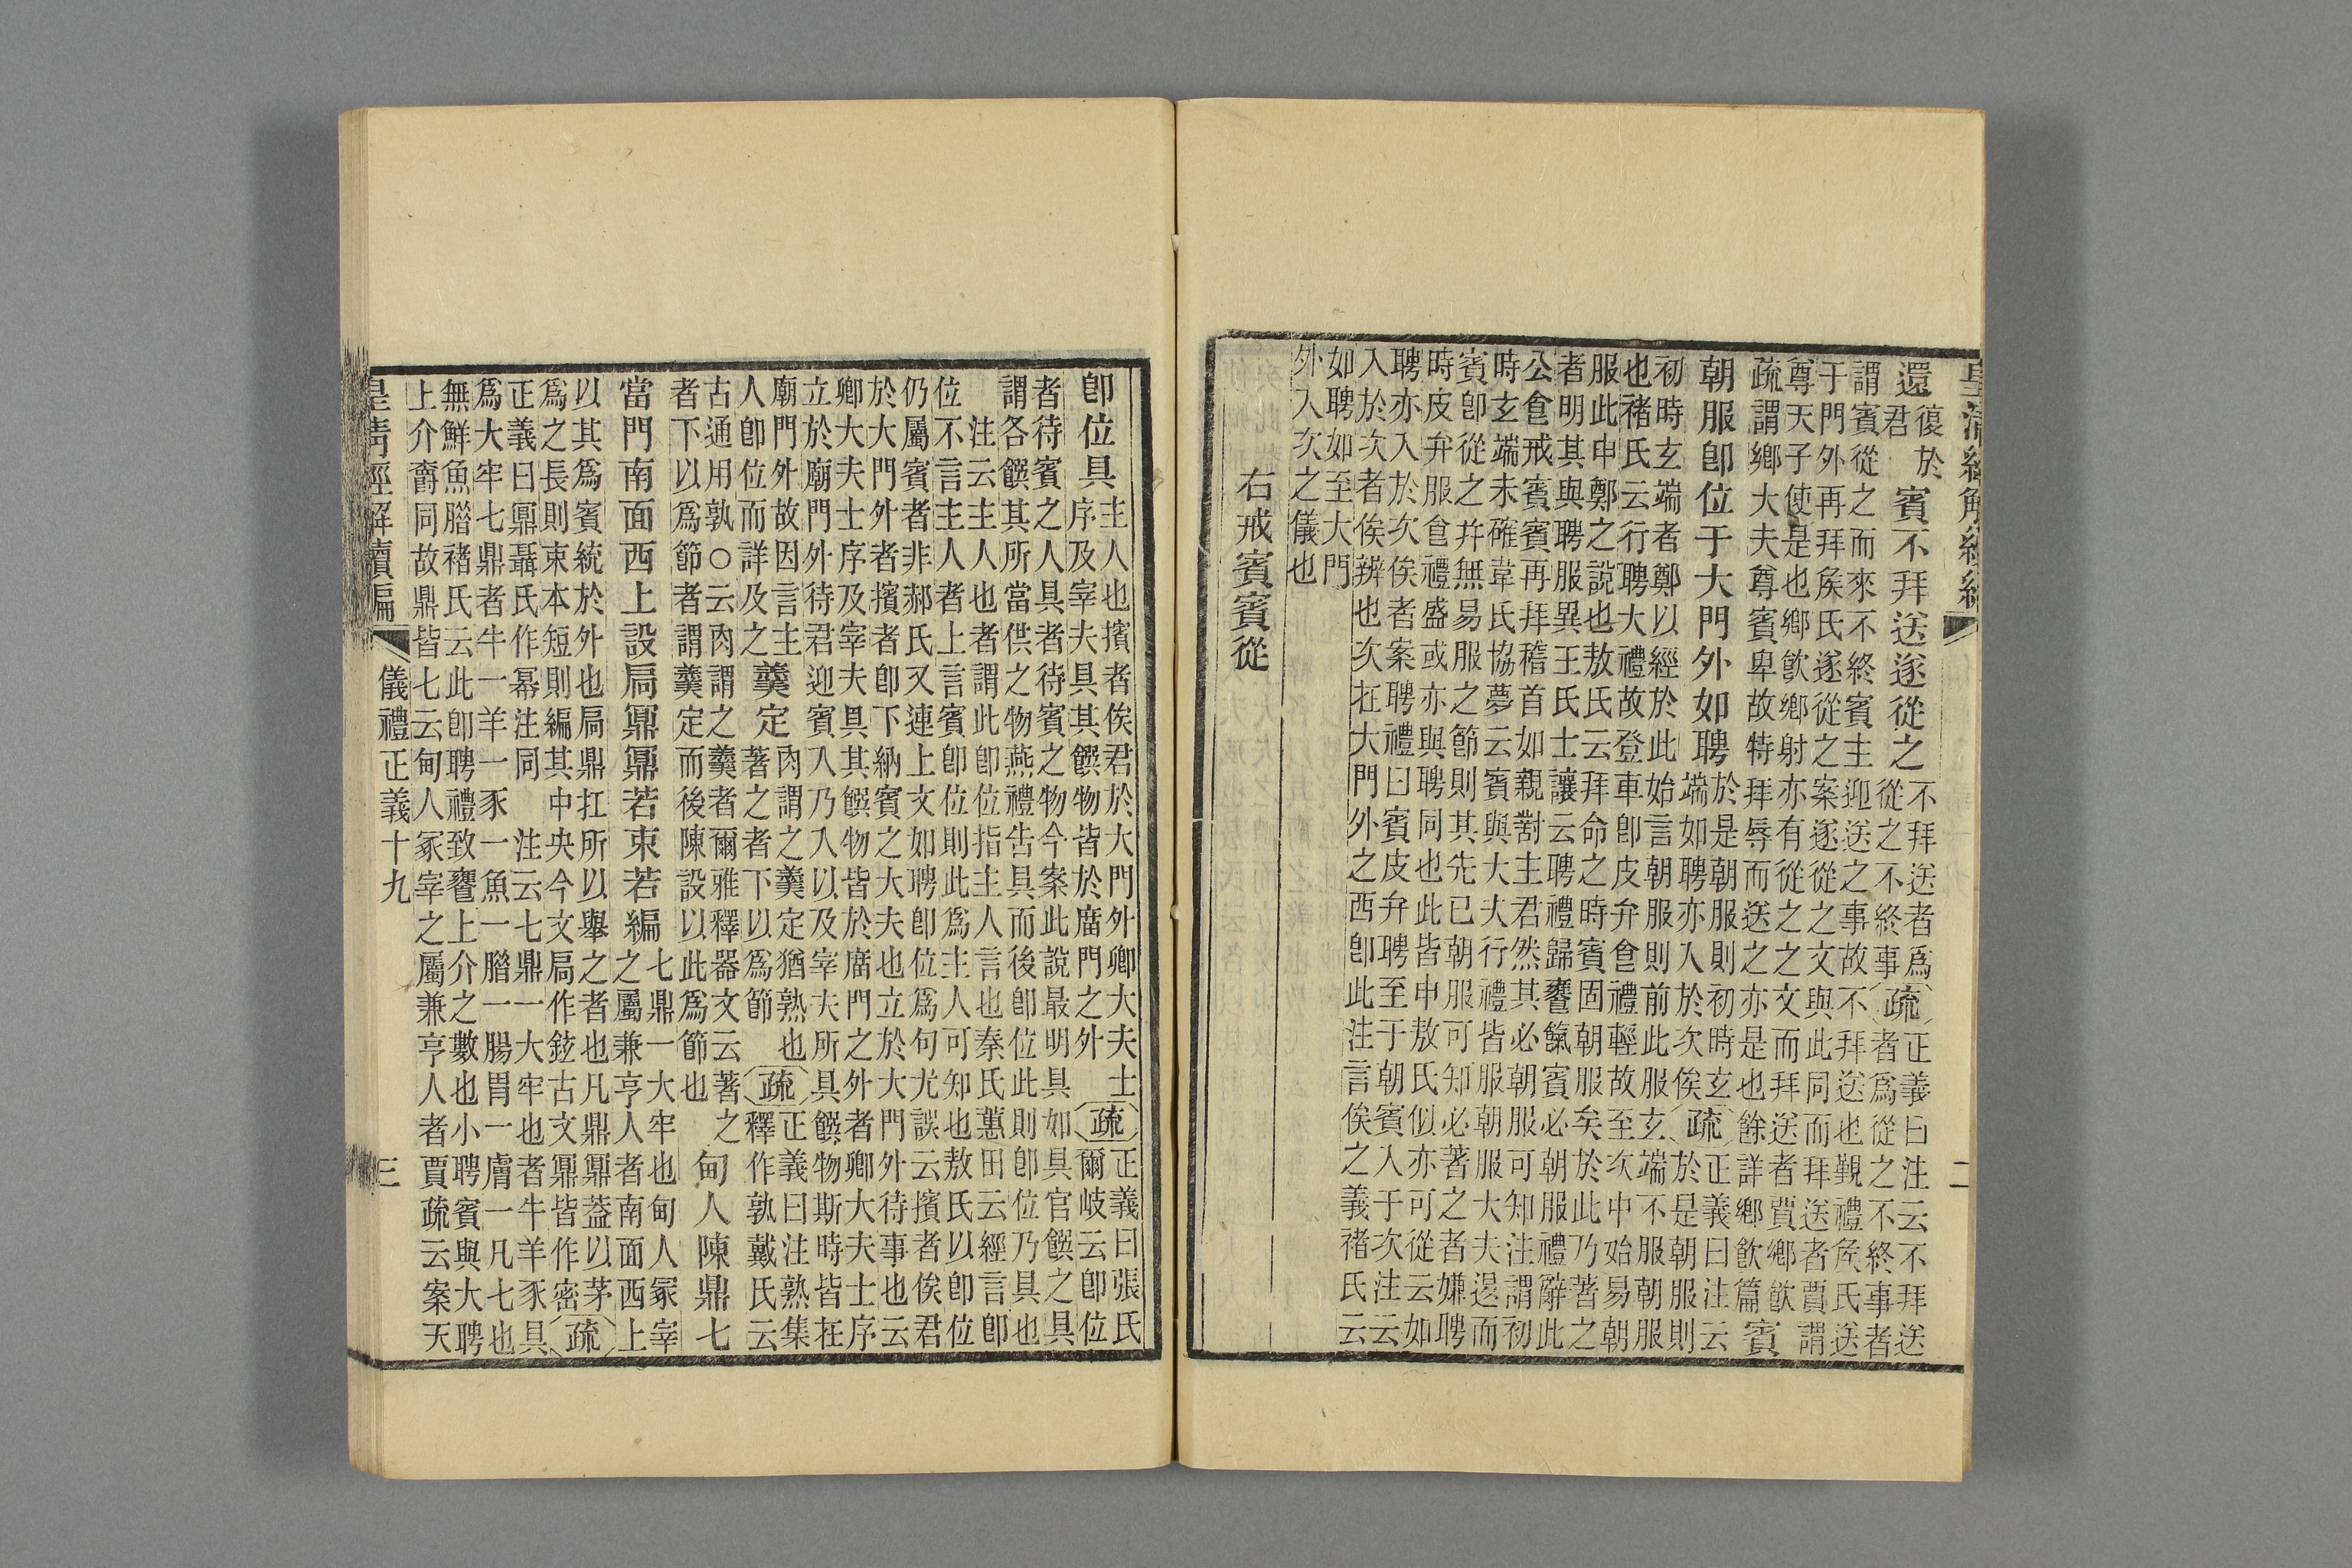 皇清經解續編
二
還
復於
君
賓不拜送遂從之
不拜送者爲
從之不終事
疏
正義曰注云不拜送
者爲從之不終事者
謂賓從之而來不終賓主迎送之事故不拜送也覲禮矦氏送
于門外再拜矦氏遂從之案遂從之文與此同而拜送者賈謂
尊天子使是也鄉飮鄉射亦有從之之文而拜送者賈鄉飮
疏謂鄉大夫尊賓卑故特拜辱而送之亦是也餘詳鄉飮篇
賓
朝服卽位于大門外如聘
於是朝服則初時玄
端如聘亦入於次俟
疏
正義曰注云
於是朝服則
初時玄端者鄭以經於此始言朝服則前此服玄端不服朝服
也褚氏云行聘大禮故登車卽皮弁食禮輕故至次中始易朝
服此申鄭之說也敖氏云拜命之時賓固朝服矣於此乃著之
者明其與聘服異王氏士讓云聘禮歸饔餼賓必朝服禮辭此
公食戒賓賓再拜稽首如親對主君然其必朝服可知注謂初
時玄端未確韋氏協夢云賓與大大行禮皆服朝服大夫退而
賓卽從之幷無易服之節則其先已朝服可知必著之者嫌聘
時皮弁服食禮盛或亦與聘同也此皆申敖氏似亦可從云如
聘亦入於次俟者案聘禮曰賓皮弁聘至于朝賓入于次注云
入於次者俟辨也次在大門外之西卽此注言俟之義褚氏云
如聘如至大門
外入次之儀也
右戒賓賓從
卽位具
主人也擯者俟君於大門外卿大夫士
序及宰夫具其饌物皆於廟門之外
疏
正義曰張氏
爾岐云卽位具
者待賓之人具者待賓之物今案此說最明具如具官饌之具
謂各饌其所當供之物燕禮告具而後卽位此則卽位乃具也
注云主人也者謂此卽位指主人言也秦氏蕙田云經言卽
位不言主人者上言賓卽位則此爲主人可知也敖氏以卽位
仍屬賓者非郝氏又連上文如聘卽位爲句尤誤云擯者俟君
於大門外者擯者卽下納賓之大夫也立於大門外待事也云
卿大夫士序及宰夫具其饌物皆於廟門之外者卿大夫士序
立於廟門外待君迎賓入乃入以及宰夫所具饌物斯時皆在
廟門外故因言主
人卽位而詳及之
羹定
肉謂之羹定猶熟也
著之者下以爲節
疏
正義曰注熟集
釋作孰戴氏云
古通用孰○云肉謂之羹者爾雅釋器文云著之
者下以爲節者謂羹定而後陳設以此爲節也
甸人陳鼎七
當門南面西上設扃鼏鼏若束若編
七鼎一大牢也甸人冢宰
之屬兼亨人者南面西上
以其爲賓統於外也扃鼎扛所以舉之者也凡鼎鼏蓋以茅
爲之長則束本短則編其中央今文扃作鉉古文鼏皆作密
疏
正義曰鼏聶氏作冪注同 注云七鼎一大牢也者牛羊豕具
爲大牢七鼎者牛一羊一豕一魚一腊一腸胃一膚一凡七也
無鮮魚腊褚氏云此卽聘禮致饔上介之數也小聘賓與大聘
上介饔同故鼎皆七云甸人冢宰之屬兼亨人者賈疏云案天
皇清經解續編
儀禮正義十九
三